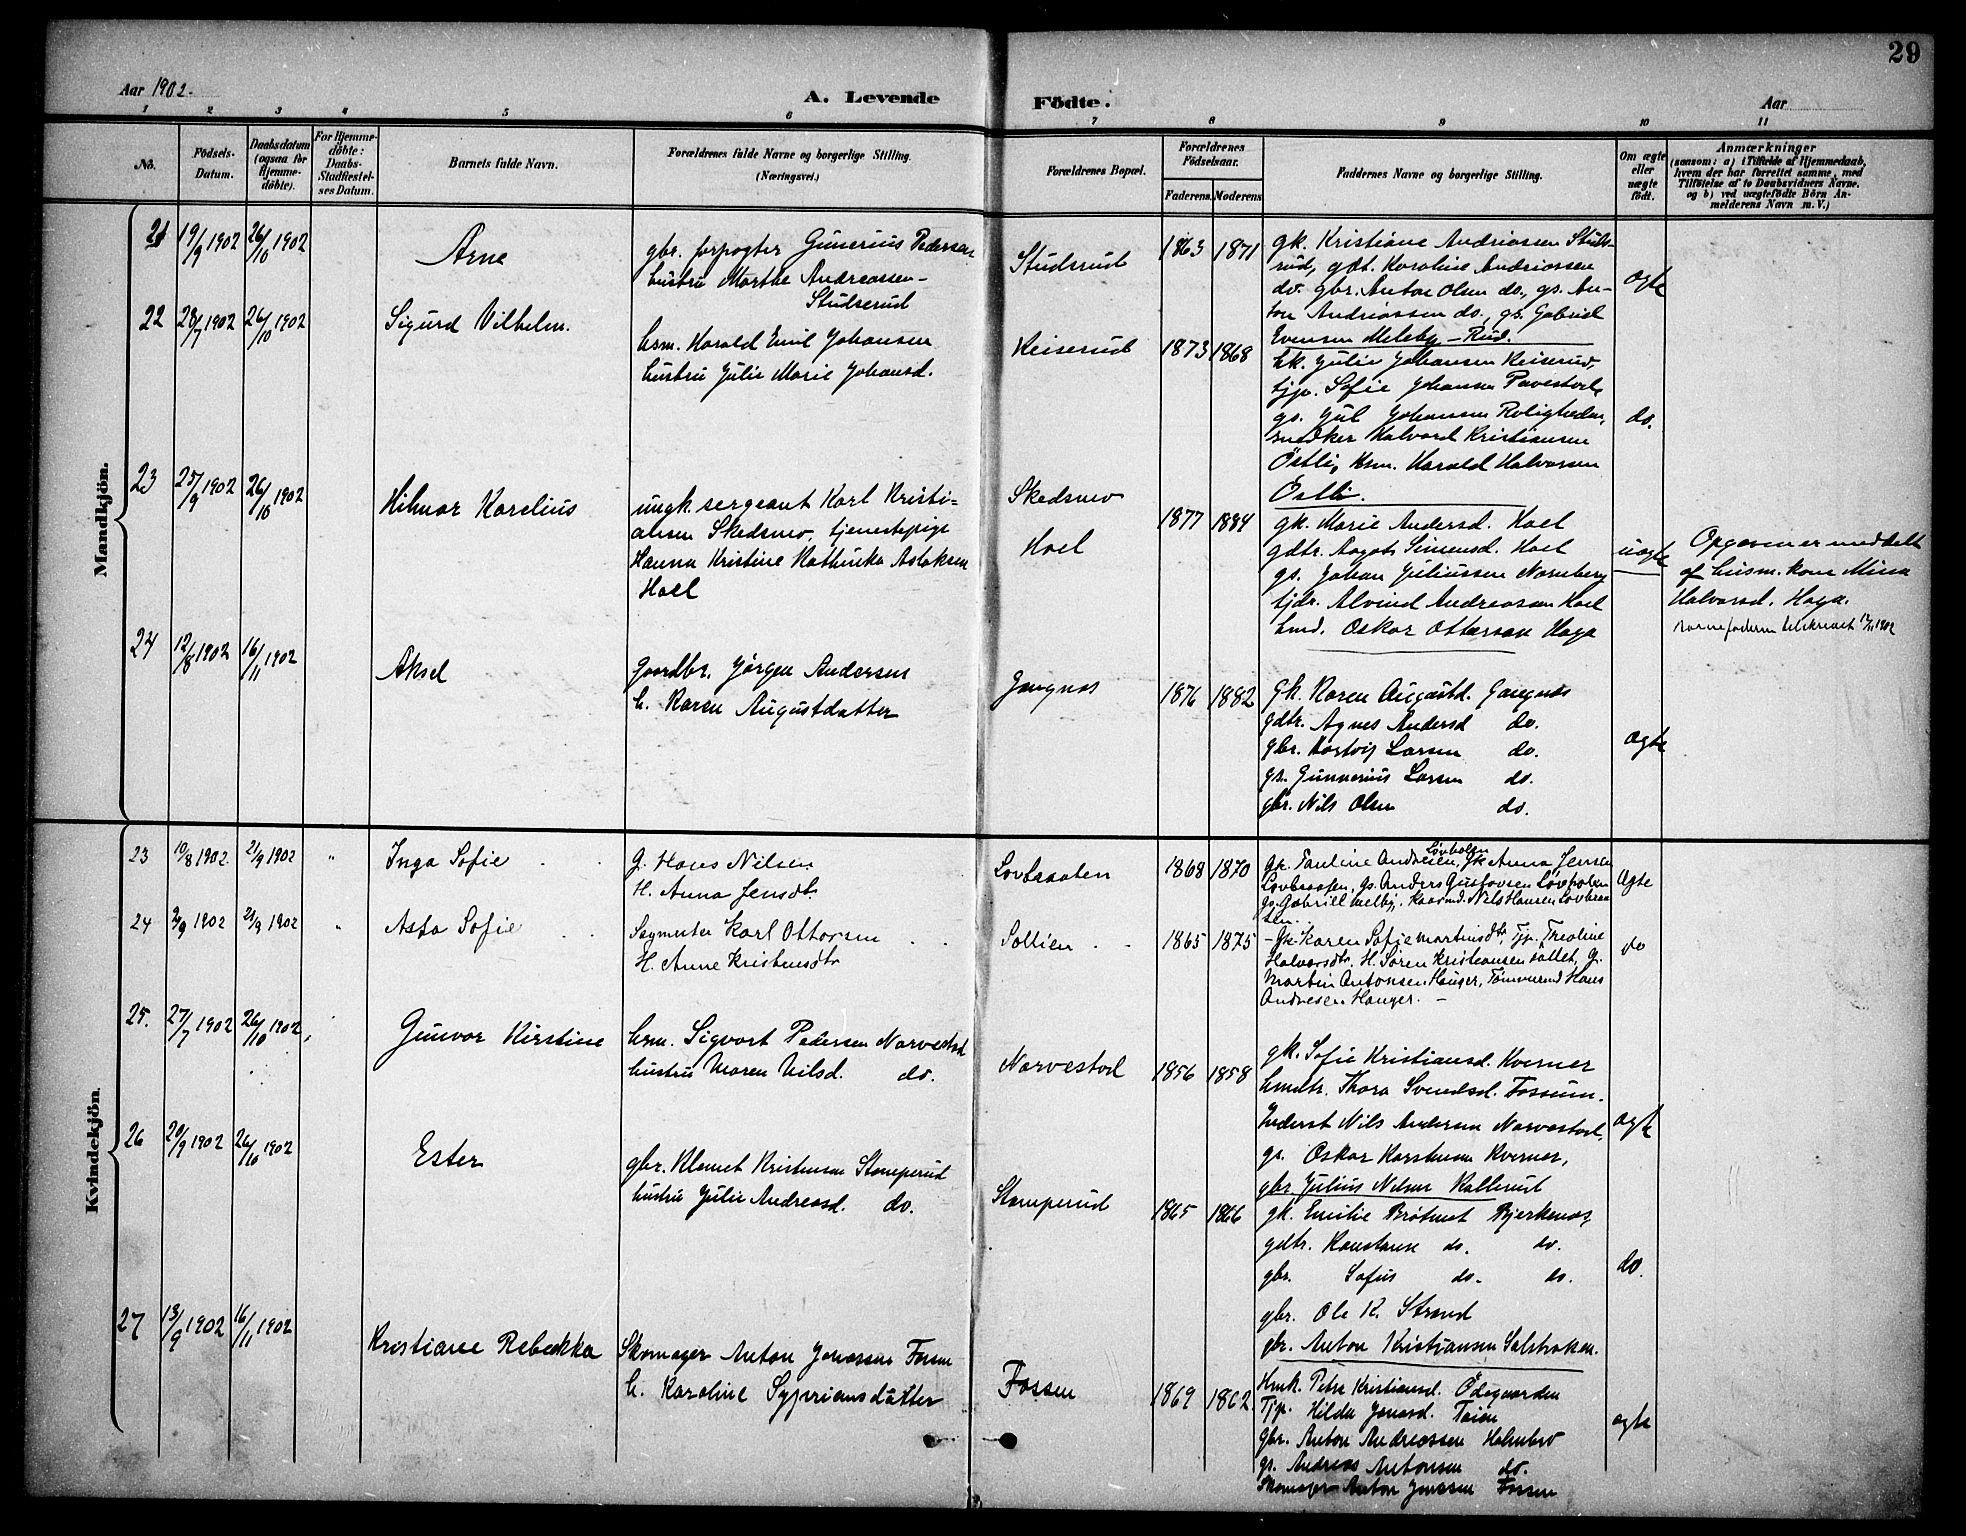 29
Aar 1902.
A. Levende Födte.
Aar
1 2 3 4 5 6 7 8 9 10 11
No.
Födsels-Datum.
Daabsdatum (ogsaa for Hjemme-döbte).
For Hjemme-döbte: Daabs-Stadfæstel-ses Datum.
Barnets fulde Navn.
Forældrenes fulde Navne og borgerlige Stilling. (Næringsvei.)
Forældrenes Bopæl.
Forældrenes Födselsaar.
Faderens. Moderens
Faddernes Navne og borgerlige Stilling.
Om ægte eller uægte födt.
Anmærkninger
(saasom: a) i Tilfælde af Hjemmedaab,
hvem der har forrettet samme, med
Tilföielse af to Daabsvidners Navne.
og b) ved uægtefödte Börn An-
melderens Navn m. V.)
Mandkjön.
21 19/9 1902 26/10 1902
Arne
gbr. forpagter Gunerius Pedersen
hustru Marthe Andreassen
Studserud
Studsrud
1863 1871
gk. Kristiane Andreassen Studs-
rud, gdt. Karoline Andreassen
do. gbr. Anton Olsen do., gs. An-
ton Andreassen do., gs. Gabriel
Evensen Meleby - Rud.
ægte
22 28/7 1902 26/10 1902
Sigurd Vilhelm.
hsm. Harald Emil Johansen
hustru Julie Marie Johansd.
Keiserud
1873 1868
hk. Julie Johansen Keiserud,
tjp. Sofie Johansen
gs. Jul Johansen Roligheden,
snedker Halvard Kristiansen
Østli, hsm. Harald Halvorsen
Østli.
do.
23 25/9 1902 26/10 1902
Hilmar Karelius
ungk. sergeant Karl Kristi-
ansen Skedsmo, tjenestepige
Hanna Kristine Kathinka Aslaksen
Hoel
Skedsmo
Hoel
1877 1884
gk. Marie Andersd. Hoel
gdtr. Aagot Simensd. Hoel
gs. Johan Juliussen Norneberg
tjdr. Alvind Andreassen Hoel
Oskar Ottersen Haga
uægte
Opgaven er meddelt
af husm. kone Mina
Halvorsd. Haga.
Barnefaderen tilskrevet 1902
24 12/8 1902 16/11 1902
Aksel
Gaardbr. Jørgen Andersen
h. Karen Augustdatter
Gangnæs
1876 1882
Gk. Karen Augustd. Gangnæs
gdtr. Agnes Andersd do.
gbr. Hartvig Larsen do.
gs. Gunnerius Larsen do.
gbr. Nils Olsen do.
ægte
Kvindekjön.
23 10/8 1902. 21/9 1902 "
Inga Sofie
G. Hans Nilsen.
H. Anna Jensdtr.
Løvbraaten
1868 1870
Gk. Pauline Andresen Løvholen, Gk Anna Jensen
Løvbraaten, Gs. Anders Gustavsen Løvholen
Gs. Gabriel Melby, Nils Hansen Løvbraa
ten.
Ægte
24 2/9 1902 21/9 1902 "
Asta Sofie
Sagmester Karl Ottersen
H. Anne Kristensdtr
Sollien
1865 1875
- Gk. Karen Sofie Martinsdtr, Tjp. Theoline
Halvorsdtr, H. Søren Kristiansen Tollet, G.
Martin Antonsen Hauger, Tømmermd Hans
Andresen Hauger. -
do
25. 27/7 1902 26/10 1902
Gunvor Kirstine
hsm. Sigvart Pedersen Narvestad
hustru Maren Nilsd. do.
Narvestad
1856 1858
gk. Sofie Kristiansd. Kverner
Thora Svendsd. Fossum.
Inderst Nils Andersen Narvestad,
gs. Oskar Karstensen Kverner,
gbr. Julius Nilsen Kallerud
ægte
26 20/9 1902 26/10 1902
Ester
gbr. Klemet Kristensen Stomperud
hustru Julie Andreasd. do.
Stomperud
1865 1866
gk. Emilie Brøtmet Bjerkenæs,
gdtr. Konstanse do. do.
gbr. Sofus do. do.
gbr. Ole K. Strand
gbr. Anton Kristiansen
do.
27 13/9 1902 16/11 1902
Kristiane Rebekka
Skomager Anton Johnssen Fossen
h. Karoline Sypriansdatter
Fossen
1869 1862
Hmk. Petra Kristiansd. Ødegaarden
Tjp. Hilda Jonasd. Tøien
Gbr. Anton Andreassen Holmbro
gs. Andreas Antonsen do.
Skomager Anton Jonssen Fossen
ægte